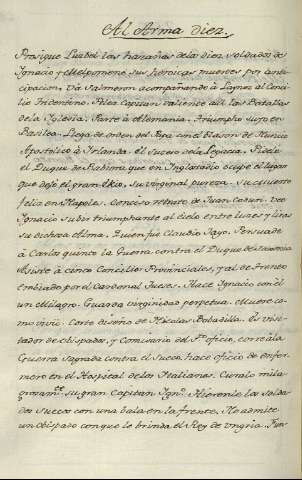 Al Arma diez
Prosigue Luzbel las hazañas de los diez soldados de
Ignacio y Melpomene sus heroicas muertes por anti-
cipacion. Va Salmeron acompañando a Laynez al Conci-
lio Tridentino. Pelea Capitan valiente las Batallas
de la Iglesia. Parte a Alemania. Triumpho suyo en
Basilea. Llega de orden del Papa con el blason de Nuncio
Apostolico a Irlanda. El suceso de la Legacia. Pidele
el Duque de Baviera que en Inglostadio ocupe el lugar
que dejó el gran Ekio. Su virginal pureza. Su muerte
feliz en Napoles. Conciso retrato de Juan Coduri. Vee
Ignacio subir triumphante al cielo entre luzes y liras
su dichosa Alma. Quien fue Claudio Jayo. Persuade
a Carlos quinto la Guerra contra el Duque de Saxonia
Asiste a cinco Concilios Provinciales, y al de Trento
Embiado por el Cardenal Hace Ignacio con el
un Milagro. Guarda virginidad perpetua. Muere co-
mo vivio. Corto diseño de Nicolas Bobadilla. Es visi-
tador de obispados, y Comisario del Sto. oficio, corre a la
Guerra Sagrada contra el Sueco, hace oficio de enfer-
mero en el Hospital de los Italianos. Curalo mila-
grosamte. su gran Capitan Ignº. Hierenle los Solda-
dos Suecos con una bala en la frente. No admite
un obispado con que le brinda el Rey de Ungria.